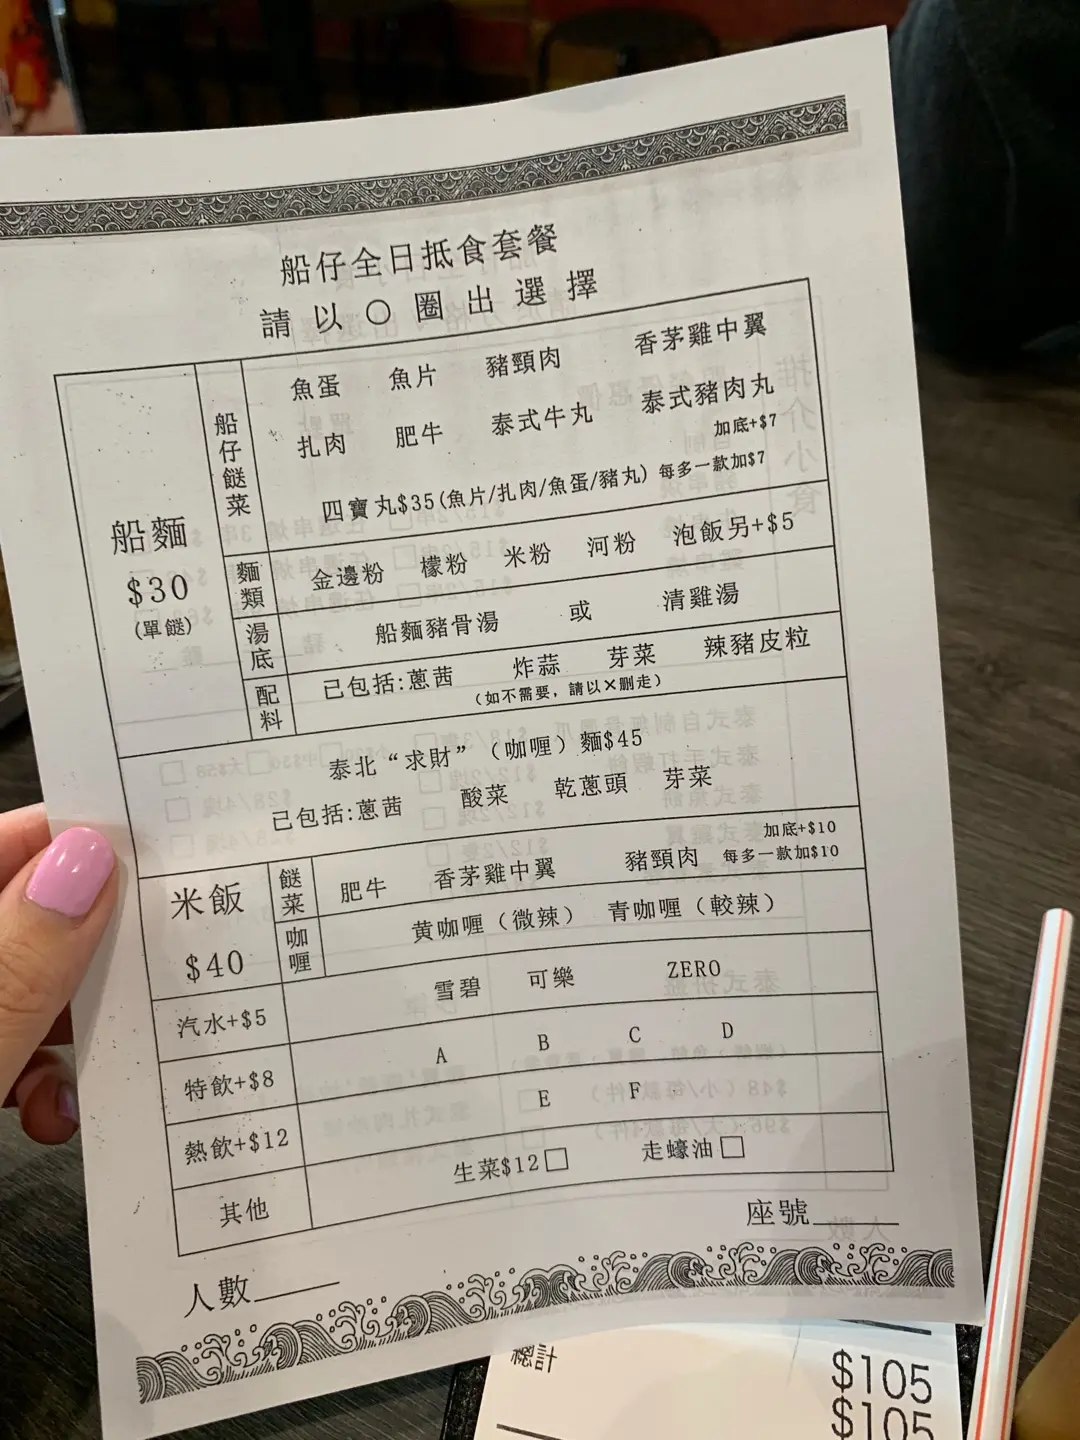 船仔全日抵食套餐
請以〇圈出選擇
船麵
$30
(單餸)
船仔餸菜
魚蛋 魚片 豬頸肉 香茅雞中翼
扎肉 肥牛 泰式牛丸 泰式豬肉丸
加底+$7
四寶丸$35(魚片/扎肉/魚蛋/豬丸) 每多一款加$7
麵類
金邊粉 檬粉 米粉 河粉 泡飯另+$5
湯底
船麵豬骨湯 或 清雞湯
配料
已包括:蔥茜 炸蒜 芽菜 辣豬皮粒
(如不需要,請以×刪走)
泰北“求財”(咖喱)麵$45
已包括:蔥茜 酸菜 乾蔥頭 芽菜
米飯
$40
餸菜
肥牛 香茅雞中翼 豬頸肉
加底+$10
每多一款加$10
咖喱
黄咖喱(微辣) 青咖喱(較辣)
汽水+$5 雪碧 可樂 ZERO
特飲+$8 A B C D
熱飲+$12 E F
其他 生菜$12□ 走蠔油□
座號____
人數____
總計 $105
$105